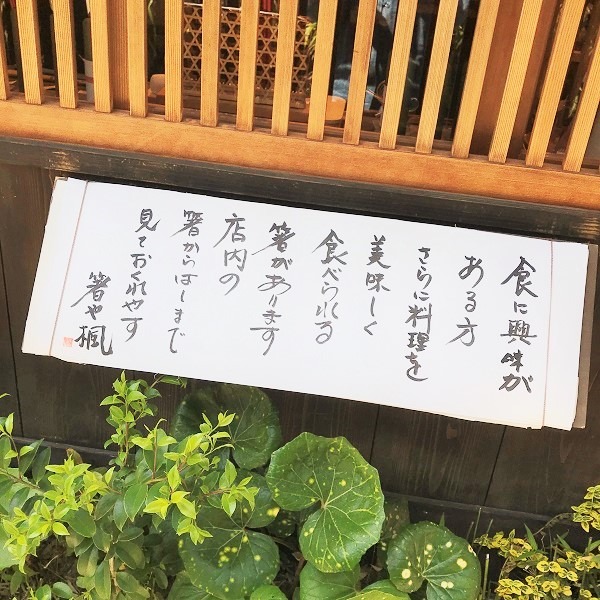 食に興味が
ある方
さらに料理を
美味しく
食べられる
箸があります
店内の
箸からはしまで
見ておくれやす
箸や楓